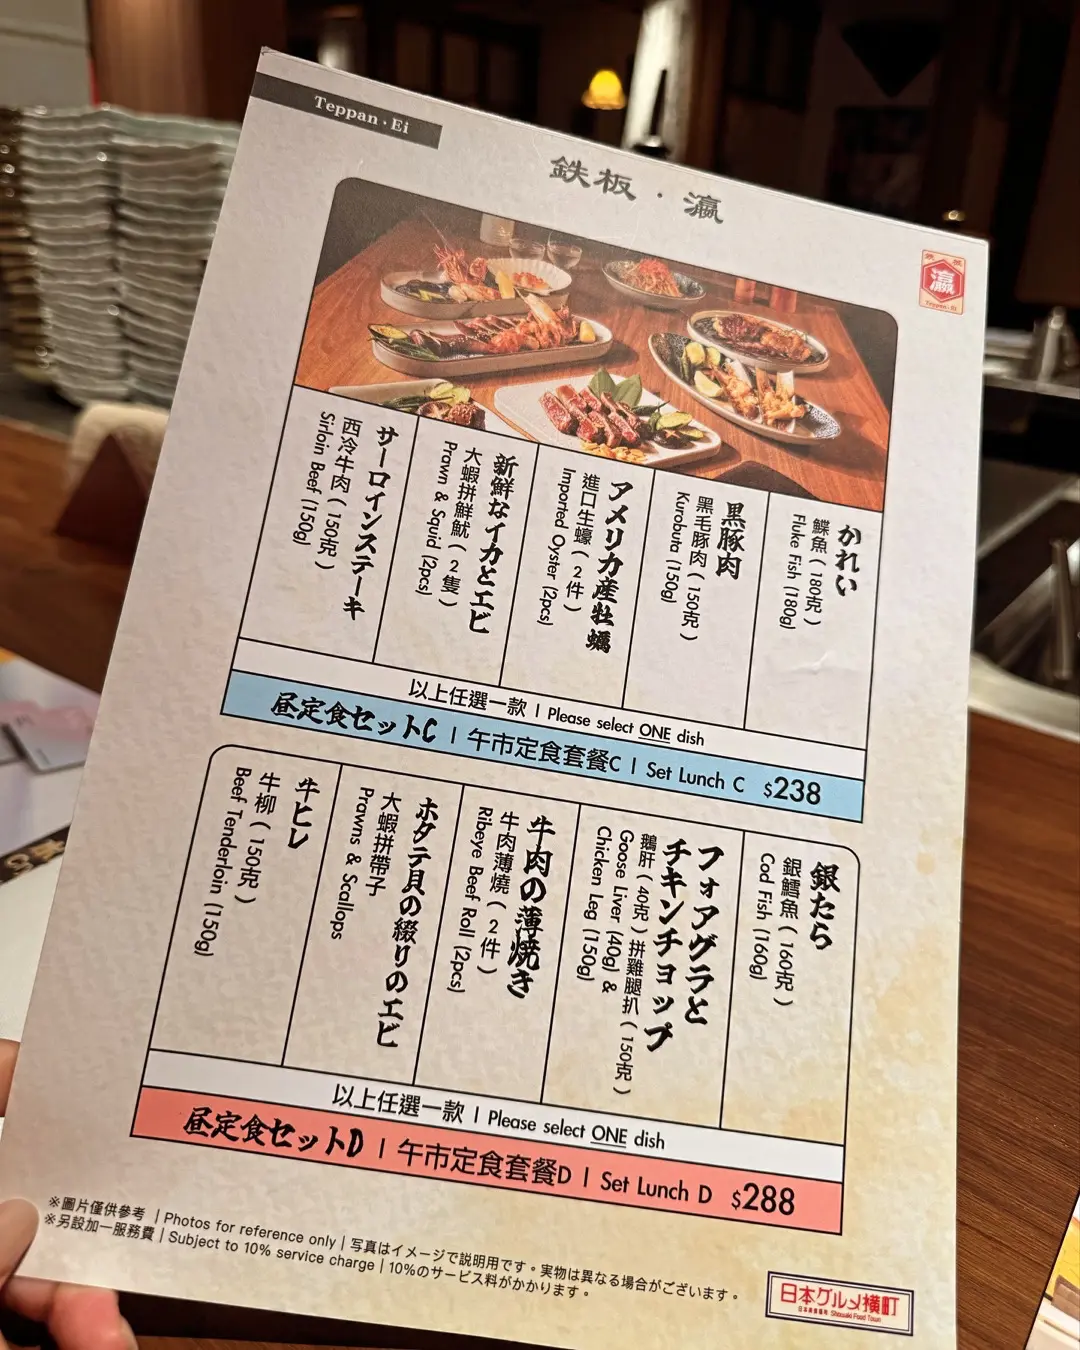 Teppan · Ei
鉄板 · 瀛
瀛
Teppan · Ei
かれい
鰈魚（180克）
Fluke Fish (180g)
黒豚肉
黑毛豚肉（150克）
Kurobuta (150g)
アメリカ産牡蠣
進口生蠔（2件）
Imported Oyster (2pcs)
新鮮なイカとエビ
大蝦拼鮮魷（2隻）
Prawn & Squid (2pcs)
サーロインステーキ
西冷牛肉（150克）
Sirloin Beef (150g)
以上任選一款 | Please select ONE dish
昼定食セットC | 午市定食套餐C | Set Lunch C $238
銀たら
銀鱈魚（160克）
Cod Fish (160g)
フォアグラと
チキンチョップ
鵝肝（40克）拼雞腿扒（150克）
Goose Liver (40g) &
Chicken Leg (150g)
牛肉の薄焼き
牛肉薄燒（2件）
Ribeye Beef Roll (2pcs)
ホタテ貝の綴りのエビ
大蝦拼帶子
Prawns & Scallops
牛ヒレ
牛柳（150克）
Beef Tenderloin (150g)
以上任選一款 | Please select ONE dish
昼定食セットD | 午市定食套餐D | Set Lunch D $288
※圖片僅供參考 | Photos for reference only | 写真はイメージで説明用です。実物は異なる場合がございます。
※另設加一服務費 | Subject to 10% service charge | 10%のサービス料がかかります。
日本グルメ横町
Showaki Food Town